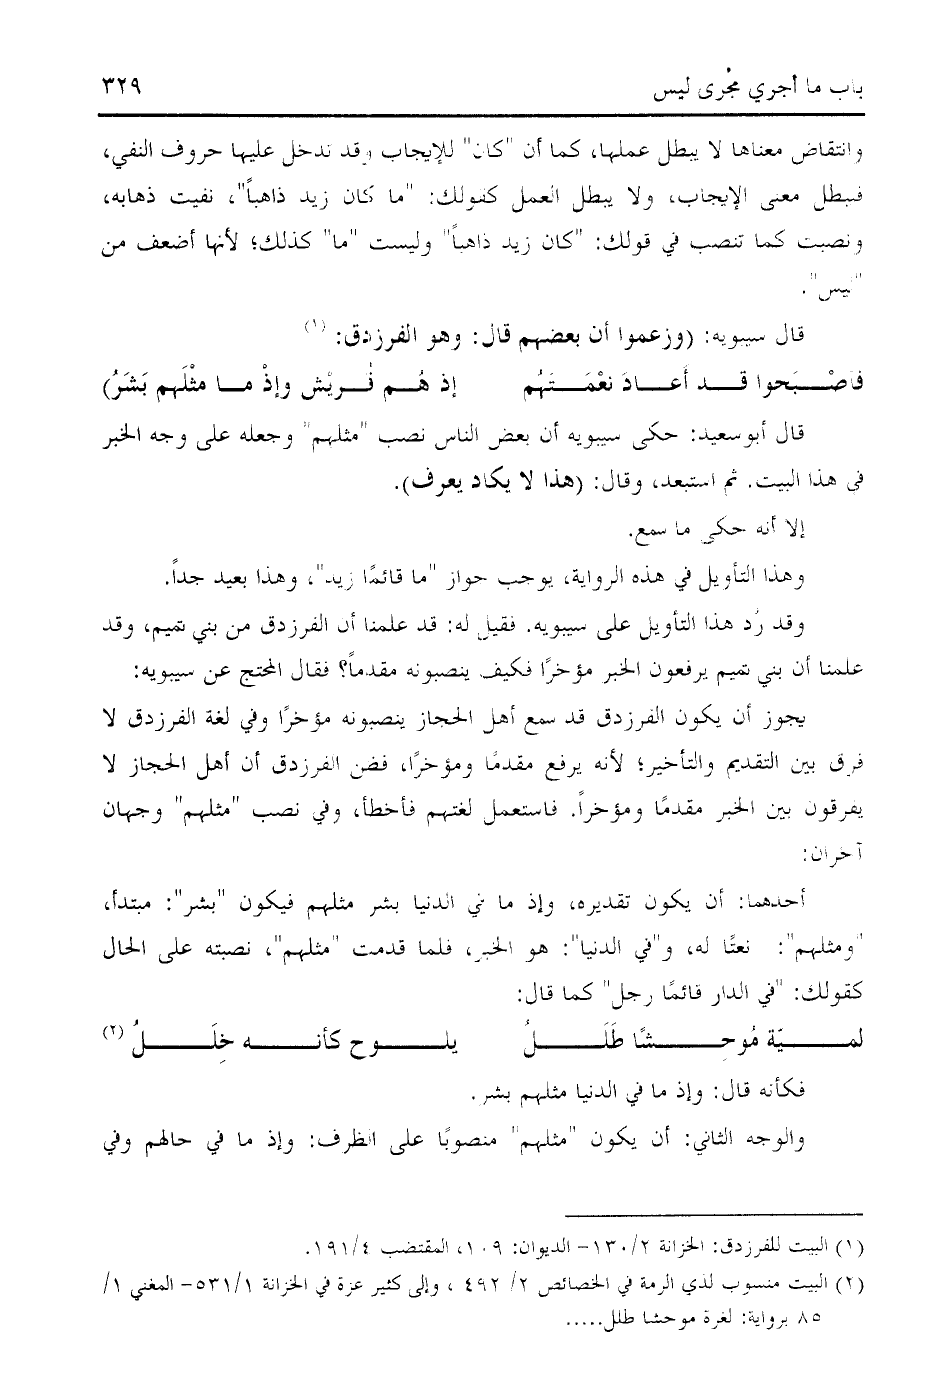 باب ما أجري مُجْرى ليس ٣٢٩
وانتقاض معناها لا يبطل عملها، كما أن "كان" للإيجاب وقد تدخل عليها حروف النفي،
فيبطل معنى الإيجاب، ولا يبطل العمل كقولك: "ما كان زيد ذاهباً"، نفيت ذهابه،
ونصبت كما تنصب في قولك: "كان زيد ذاهباً" وليست "ما" كذلك؛ لأنها أضعف من
"ليس".
قال سيبويه: (وزعموا أن بعضهم قال: وهو الفرزدق: (١)
فَأصْـبَحوا قـد أَعـادَ نعْمَـتَهُم إذ هُـم قُريْش وإذْ مـا مثْلَهم بَشَرُ)
قال أبوسعيد: حكى سيبويه أن بعض الناس نصب "مثلهم" وجعله على وجه الخبر
في هذا البيت. ثم استبعد، وقال: (هذا لا يكاد يعرف).
إلا أنه حكى ما سمع.
وهذا التأويل في هذه الرواية، يوجب جواز "ما قائمًا زيد"، وهذا بعيد جداً.
وقد رُد هذا التأويل على سيبويه. فقيل له: قد علمنا أن الفرزدق من بني تميم، وقد
علمنا أن بني تميم يرفعون الخبر مؤخرًا فكيف ينصبونه مقدماً؟ فقال المحتج عن سيبويه:
يجوز أن يكون الفرزدق قد سمع أهل الحجاز ينصبونه مؤخرًا وفي لغة الفرزدق لا
فرق بين التقديم والتأخير؛ لأنه يرفع مقدمًا ومؤخرًا، فضن الفرزدق أن أهل الحجاز لا
يفرقون بين الخبر مقدمًا ومؤخراً. فاستعمل لغتهم فأخطأ، وفي نصب "مثلهم" وجهان
آخران:
أحدهما: أن يكون تقديره، وإذ ما في الدنيا بشر مثلهم فيكون "بشر": مبتدأ،
"ومثلهم": نعتًا له، و"في الدنيا": هو الخبر، فلما قدمت "مثلهم"، نصبته على الحال
كقولك: "في الدار قائمًا رجل" كما قال:
لمـــيّة مُوحـــشًا طَلَـــلُ يلـــوح كأنـــه خِلَـــلُ (٢)
فكأنه قال: وإذ ما في الدنيا مثلهم بشر.
والوجه الثاني: أن يكون "مثلهم" منصوبًا على الظرف: وإذ ما في حالهم وفي
(١) البيت للفرزدق: الخزانة ١٣٠/٢- الديوان: ١٠٩، المقتضب ١٩١/٤.
(٢) البيت منسوب لذي الرمة في الخصائص ٢/ ٤٩٢ ، وإلى كثير عزة في الخزانة ٥٣١/١- المغني ١/
٨٥ برواية: لغرة موحشا طلل.....